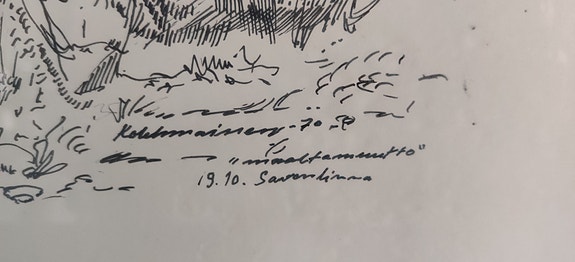 Kolehmainen -70
"maaltamuutto"
19.10. Savonlinna